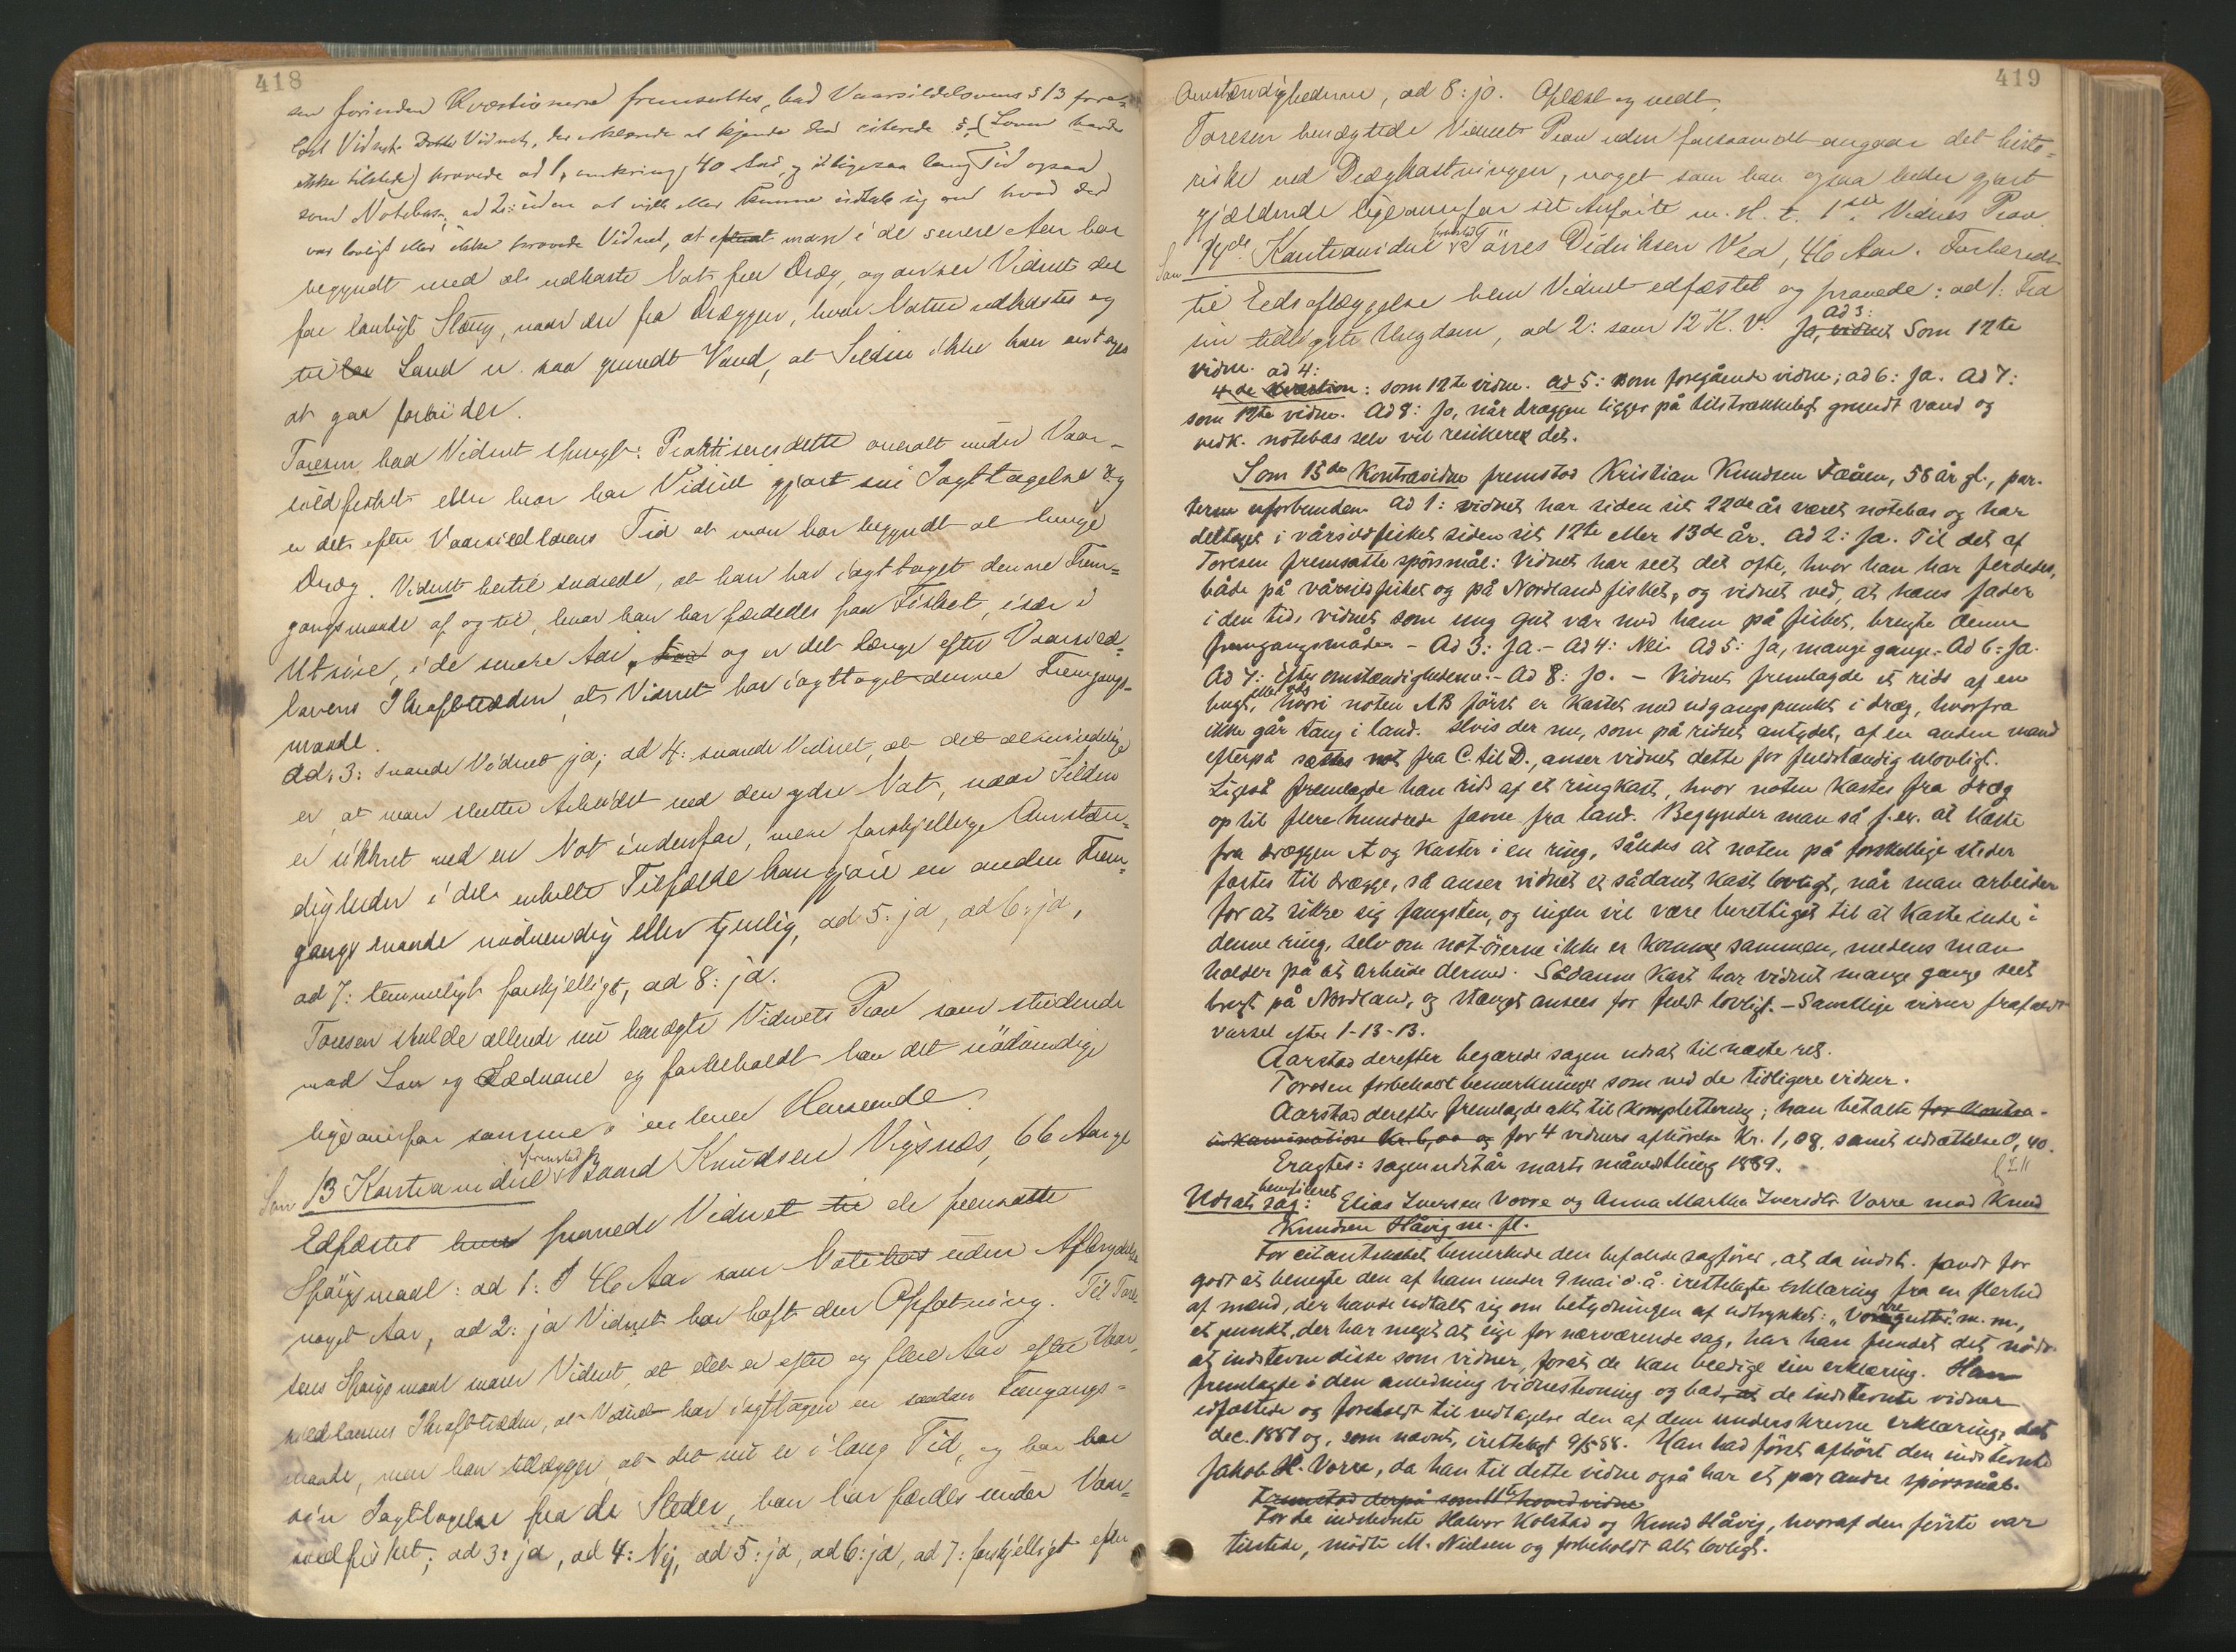 418
en forinden Kvæstionerne fremsattes, bad Vaarsildlovens § 13 fore-
læst Vidnet. Dette Vidnet, der erklærede at kjende den citerede §, (Loven havdes
ikke tilstede) provede ad 1, omkring 40 Aar, og i ligesaa lang Tid ogsaa
som Notebas; ad 2: uden at ville eller kunne udtale sig om hvad der
var lovligt eller ikke provede Vidnet, at man i de senere Aar har
begyndt med at udkaste Not fra Dræg, og anser Vidnet det
for lovligt Stæng, naar der fra Dræggen, hvor Noten udkastes og
til Land er saa grundt Vand, at Silden ikke kan antages
at gaa forbi der.
Toresen bad Vidnet spurgt: Praktiseres dette overalt under Vaar-
sildfisket eller hvor har Vidnet gjort sin Iagttagelse og
er det efter Vaarsildlovens Tid at man har begyndt at bruge
Dræg. Vidnet hertil svarede, at han har iagttaget denne Frem-
gangsmaade af og til, hvor han har færdedes paa Fisket, især i
Utsire, i de senere Aar, og er det længe efter Vaarsild-
lovens Ikrafttræden, at Vidnet har iagttaget denne Fremgangs-
maade.
ad. 3: svarede Vidnet ja; ad 4: svarede Vidnet, at det almindelige
er, at man slutter Arbeidet med den ydre Not, naar Silden
er sikkret med en Not indenfor, men forskjellige Omstæn-
digheder i det enkelte Tilfælde kan gjøre en anden Frem-
gangsmaade nødvendig eller tjenlig, ad 5: ja, ad 6: ja,
ad 7: temmeligt forskjelligt, ad 8: ja.
Toresen skulde allerede nu benægte Vidnets Prov som stridende
mod Lov og Sædvane og forbeholdt han det nødvendige
ligeoverfor samme i enhver Henseende.
Som 13 Kontravidne fremstod Baard Knudsen Vigsnæs, 66 Aar gl.
Edfæstet provede Vidnet til de fremsatte
Spörgsmaal: ad 1: I 46 Aar som Notebas uden Afbrydelse
noget Aar, ad 2: ja Vidnet har havt den Opfatning. Til Tore-
sens Spörgsmaal svarer Vidnet, at det er efter og flere Aar efter Vaar-
sildlovens Ikrafttræden, at Vidnet har iagttagen en saadan Fremgangs-
maade, men han tillægger at det nu er i lang Tid, og har han
sin Iagttagelse fra de Steder, han har færdes under Vaar-
sildfisket; ad 3: ja, ad 4: Nej, ad 5: ja, ad 6: ja, ad 7: forskjelligt efter
419
Omstændighederne, ad 8: ja. Oplæst og vedt.
Toresen benægtede Vidnets Prov uden forsaavidt angaar det histo-
riske ved Drægkastningen, noget som han ogsaa heder gjort
gjældende ligeoverfor sit Anførte m. H. t. 1ste Vidnes Prov
Som 14de Kontravidne fremstod Törres Didriksen Vea, 46 Aar. Forberedt
til Eedsaflæggelse blev Vidnet edfæstet og provede: ad 1: Fra
sin tidligste Ungdom, ad 2: som 12 K. V. Ad 3: Ja, vidnet Som 12te
vidne. ad 4:
4de Kvæstion: som 12te vidne. ad 5: som foregående vidne; ad 6: Ja. Ad 7:
som 12te vidne. Ad 8: Ja, når dræggen ligger på tilstrækkeligt grundt vand og
vedk. notebas selv vil resikere det.
Som 15de Kontravidne fremstod Kristian Knudsen Fæåen, 55 år gl., par-
terne uforbunden. Ad 1: vidnet har siden sit 22de år været notebas og har
deltaget i vårsildfisket siden sit 12te eller 13de år. Ad 2: Ja. Til det af
Toresen fremsatte spörsmål: Vidnet har seet det ofte, hvor han har ferdedes,
både på vårsildfisket og på Nordlandsfisket, og vidnet ved, at hans fader
i den tid, vidnet som ung gut var med ham på fisket, brugte denne
fremgangsmåde. - Ad 3: Ja. - Ad 4: Nei. Ad 5: Ja, mange gange. - Ad 6: Ja.
Ad 7: Efter omstændighederne. - Ad 8: Ja. - Vidnet fremlagde et rids af en
bugt, hvori noten AB först er kastet med udgangspunkt i dræg, hvorfra
ikke går taug i land. Hvis der nu, som på ridset antydet, af en anden mand
efterpå sættes not fra C. til D., anser vidnet dette for fuldstændig ulovligt.
Ligeså fremlagde han rids af et ringkast, hvor noten kastes fra dræg
op til flere hundrede favne fra land. Begynder man så f. ex. at kaste
fra dræggen A og kaster i en ring, således at noten på forskellige steder
fæstes til drægge, så anser vidnet et sådant kast lovligt, når man arbeider
for at sikre sig fangsten, og ingen vil være berettiget til at kaste inde i
denne ring, selv om not-örerne ikke er komne sammen, medens man
holder på at arbeide dermed. Sådanne kast har vidnet mange gange seet
brugt på Nordland, og stænget ansees for fuldt lovligt. - Samtlige vidner frafaldt
varsel efter 1-13-13.
Aarstad derefter begærede sagen udsat til næste ret.
Toresen forbeholdt bemerkninger som ved de tidligere vidner.
Aarstad derefter fremlagde akt til komplettering; han betalte for kontra-
inkamination Kr. 6,00 og for 4 vidners afhörelse Kr. 1,08, samt udsættelse 0,40.
Eragtes: sagen udstår marts månedsthing 1889.
Udsat beneficeret sag: Elias Iversen Vorre og Anna Martha Iversdtr Vorre mod Knud
Knudsen Håvig m. fl.
For citantskabet bemerkede den befalede sagförer, at da indst. fandt for
godt at benegte den af ham under 9 mai d. å. irettelagte Erklæring fra en flerhed
af mænd, der havde udtalt sig om betydningen af udtrykket: " m. m.,
et punkt, der har meget at sige for nærværende sag, har han fundet det nödv.
at indstevne disse som vidner, forat de kan beedige sin erklæring. Han
fremlagde i den anledning vidnestevning og bad de indstevnte vidner
edfæstede og foreholdt til vedtagelse den af dem underskrevne erklæring, dat.
dec. 1887 og, som nævnt, irettelagt 9/5 88. Han bad först afhört den indstevnte
Jakob H. Vorre, da han til dette vidne også har et par andre spörsmål.
Fremstod derpå som 11te hovedvidne
For de indstevnte Halvor Kolstad og Knud Håvig, hvoraf den förste var
tilstede, mödte M. Nielsen og forbeholdt alt lovligt.